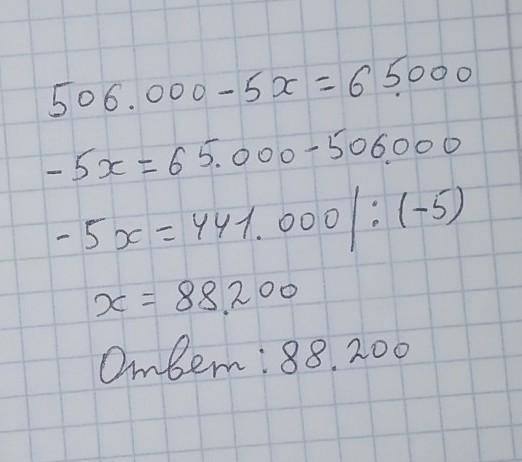 506.000 - 5x = 65.000
-5x = 65.000 - 506.000
-5x = 441.000 | : (-5)
x = 88.200
Ответ: 88.200